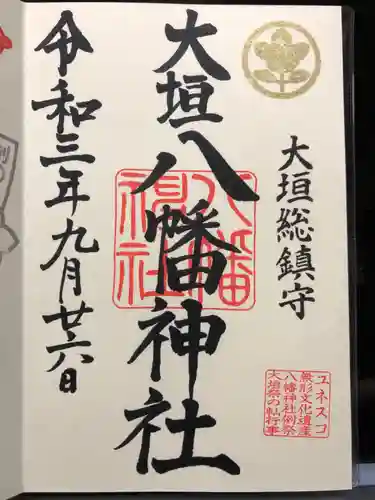 大垣総鎮守
大垣八幡神社
八幡
神社
令和三年九月廿六日
ユネスコ
無形文化遺産
八幡神社例祭
大垣祭の軕行事